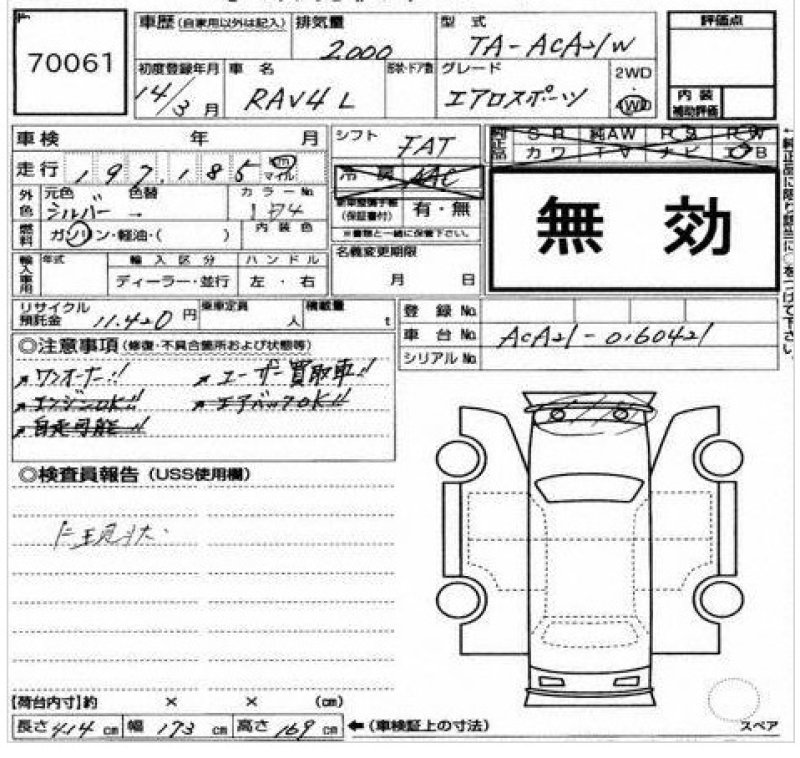 70061
車歴(自家用以外は記入)
排気量
2000
型式
TA-ACA21W
評価点
初度登録年月
14/3月
車名
RAV4 L
形状・ドア数
グレード
エアロスポーツ
2WD
4WD
内装
補助評価
車検 年 月
シフト
FAT
純正品
SR 純AW PS PW
カワ TV ナビ エアB
走行 197,185 ㎞ マイル
冷房
AAC
外色
元色
シルバー
色替
カラーNo.
1D4
新車整備手帳
(保証書付)
有・無
※書類と一緒に保管下さい。
無効
燃料
ガソリン・軽油・( )
内装色
名義変更期限
月 日
輸入車用
年式
輸入区分
ハンドル
ディーラー・並行
左・右
リサイクル
預託金
11,420円
乗車定員
人
積載量
t
登録No.
車台No.
ACA21-0160421
シリアルNo.
←純正品に限り該当に○をつけて下さい。
◎注意事項(修復・不具合箇所および状態等)
ワンオーナー!!
ユーザー買取車!!
エンジンOK!!
エアバックOK!!
自走可能!!
◎検査員報告(USS使用欄)
【荷台内寸】約 × × (㎝)
長さ414㎝ 幅173㎝ 高さ169㎝ ←(車検証上の寸法)
スペア